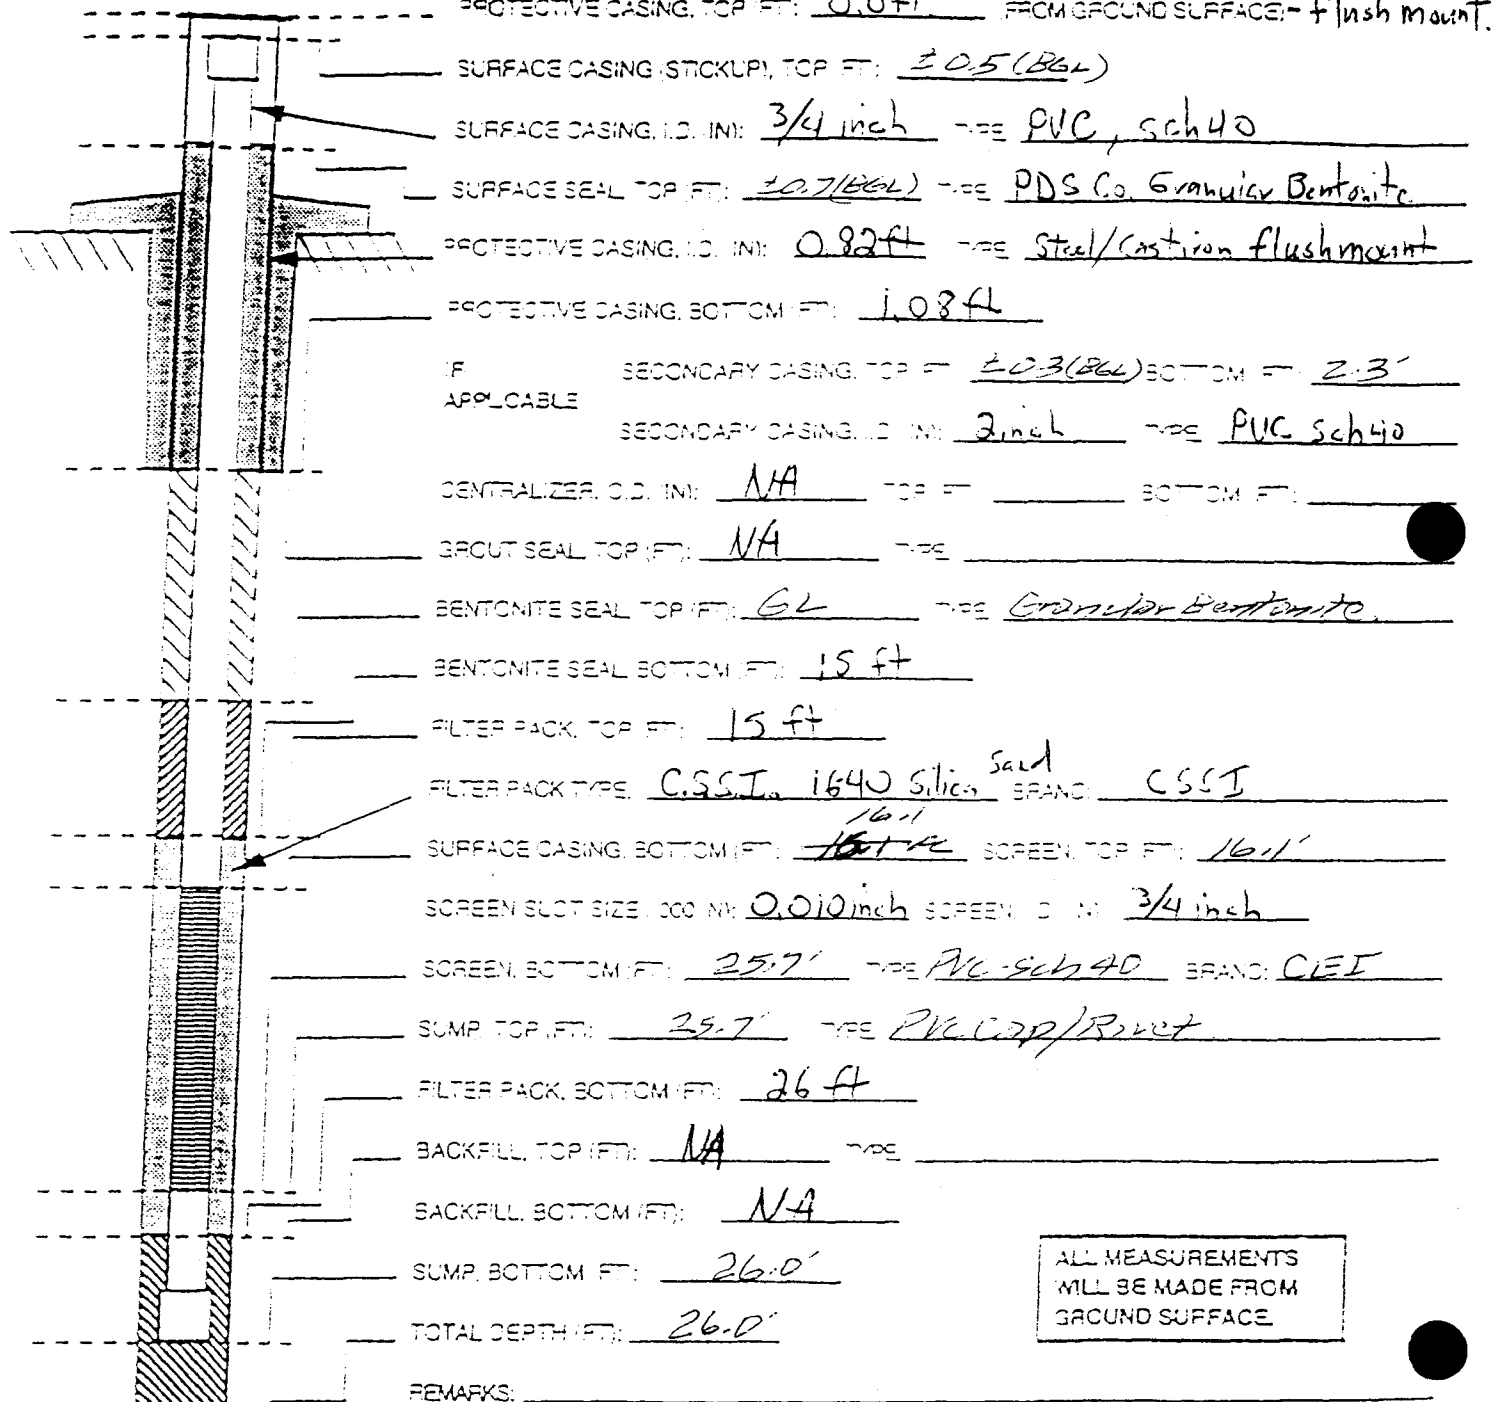 PROTECTIVE CASING, TOP (FT): 0.0ft. FROM GROUND SURFACE: - flush mount.
SURFACE CASING (STICKUP), TOP (FT): ±0.5 (BGL)
SURFACE CASING, I.D. (IN): 3/4 inch TYPE PVC, sch40
SURFACE SEAL, TOP (FT): ±0.7(BGL) TYPE PDS Co. Granular Bentonite
PROTECTIVE CASING, I.D. (IN): 0.82ft TYPE Steel/Cast iron flushmount
PROTECTIVE CASING, BOTTOM (FT): 1.08 ft
IF APPLICABLE
SECONDARY CASING, TOP FT ±0.3(BGL) BOTTOM FT: 2.3'
SECONDARY CASING, I.D. (IN) 2inch TYPE PVC Sch40
CENTRALIZER, O.D. (IN): NA TOP FT BOTTOM (FT):
GROUT SEAL, TOP (FT): NA TYPE
BENTONITE SEAL TOP (FT): GL TYPE Granular Bentonite.
BENTONITE SEAL BOTTOM (FT): 15 ft
FILTER PACK, TOP (FT): 15 ft
FILTER PACK TYPE: C.S.S.I. 1640 Silica Sand BRAND: CSSI
16.1
SURFACE CASING, BOTTOM (FT): SCREEN, TOP (FT): 16.1'
SCREEN SLOT SIZE .000 IN): 0.010 inch SCREEN I.D. IN) 3/4 inch
SCREEN, BOTTOM (FT): 25.7' TYPE PVC-Sch 40 BRAND: CEI
SUMP, TOP (FT): 25.7' TYPE PVC Cap/Rivet
FILTER PACK, BOTTOM (FT): 26 ft
BACKFILL, TOP (FT): NA TYPE
BACKFILL, BOTTOM (FT): NA
SUMP, BOTTOM FT): 26.0'
TOTAL DEPTH (FT): 26.0'
ALL MEASUREMENTS
WILL BE MADE FROM
GROUND SURFACE
REMARKS: